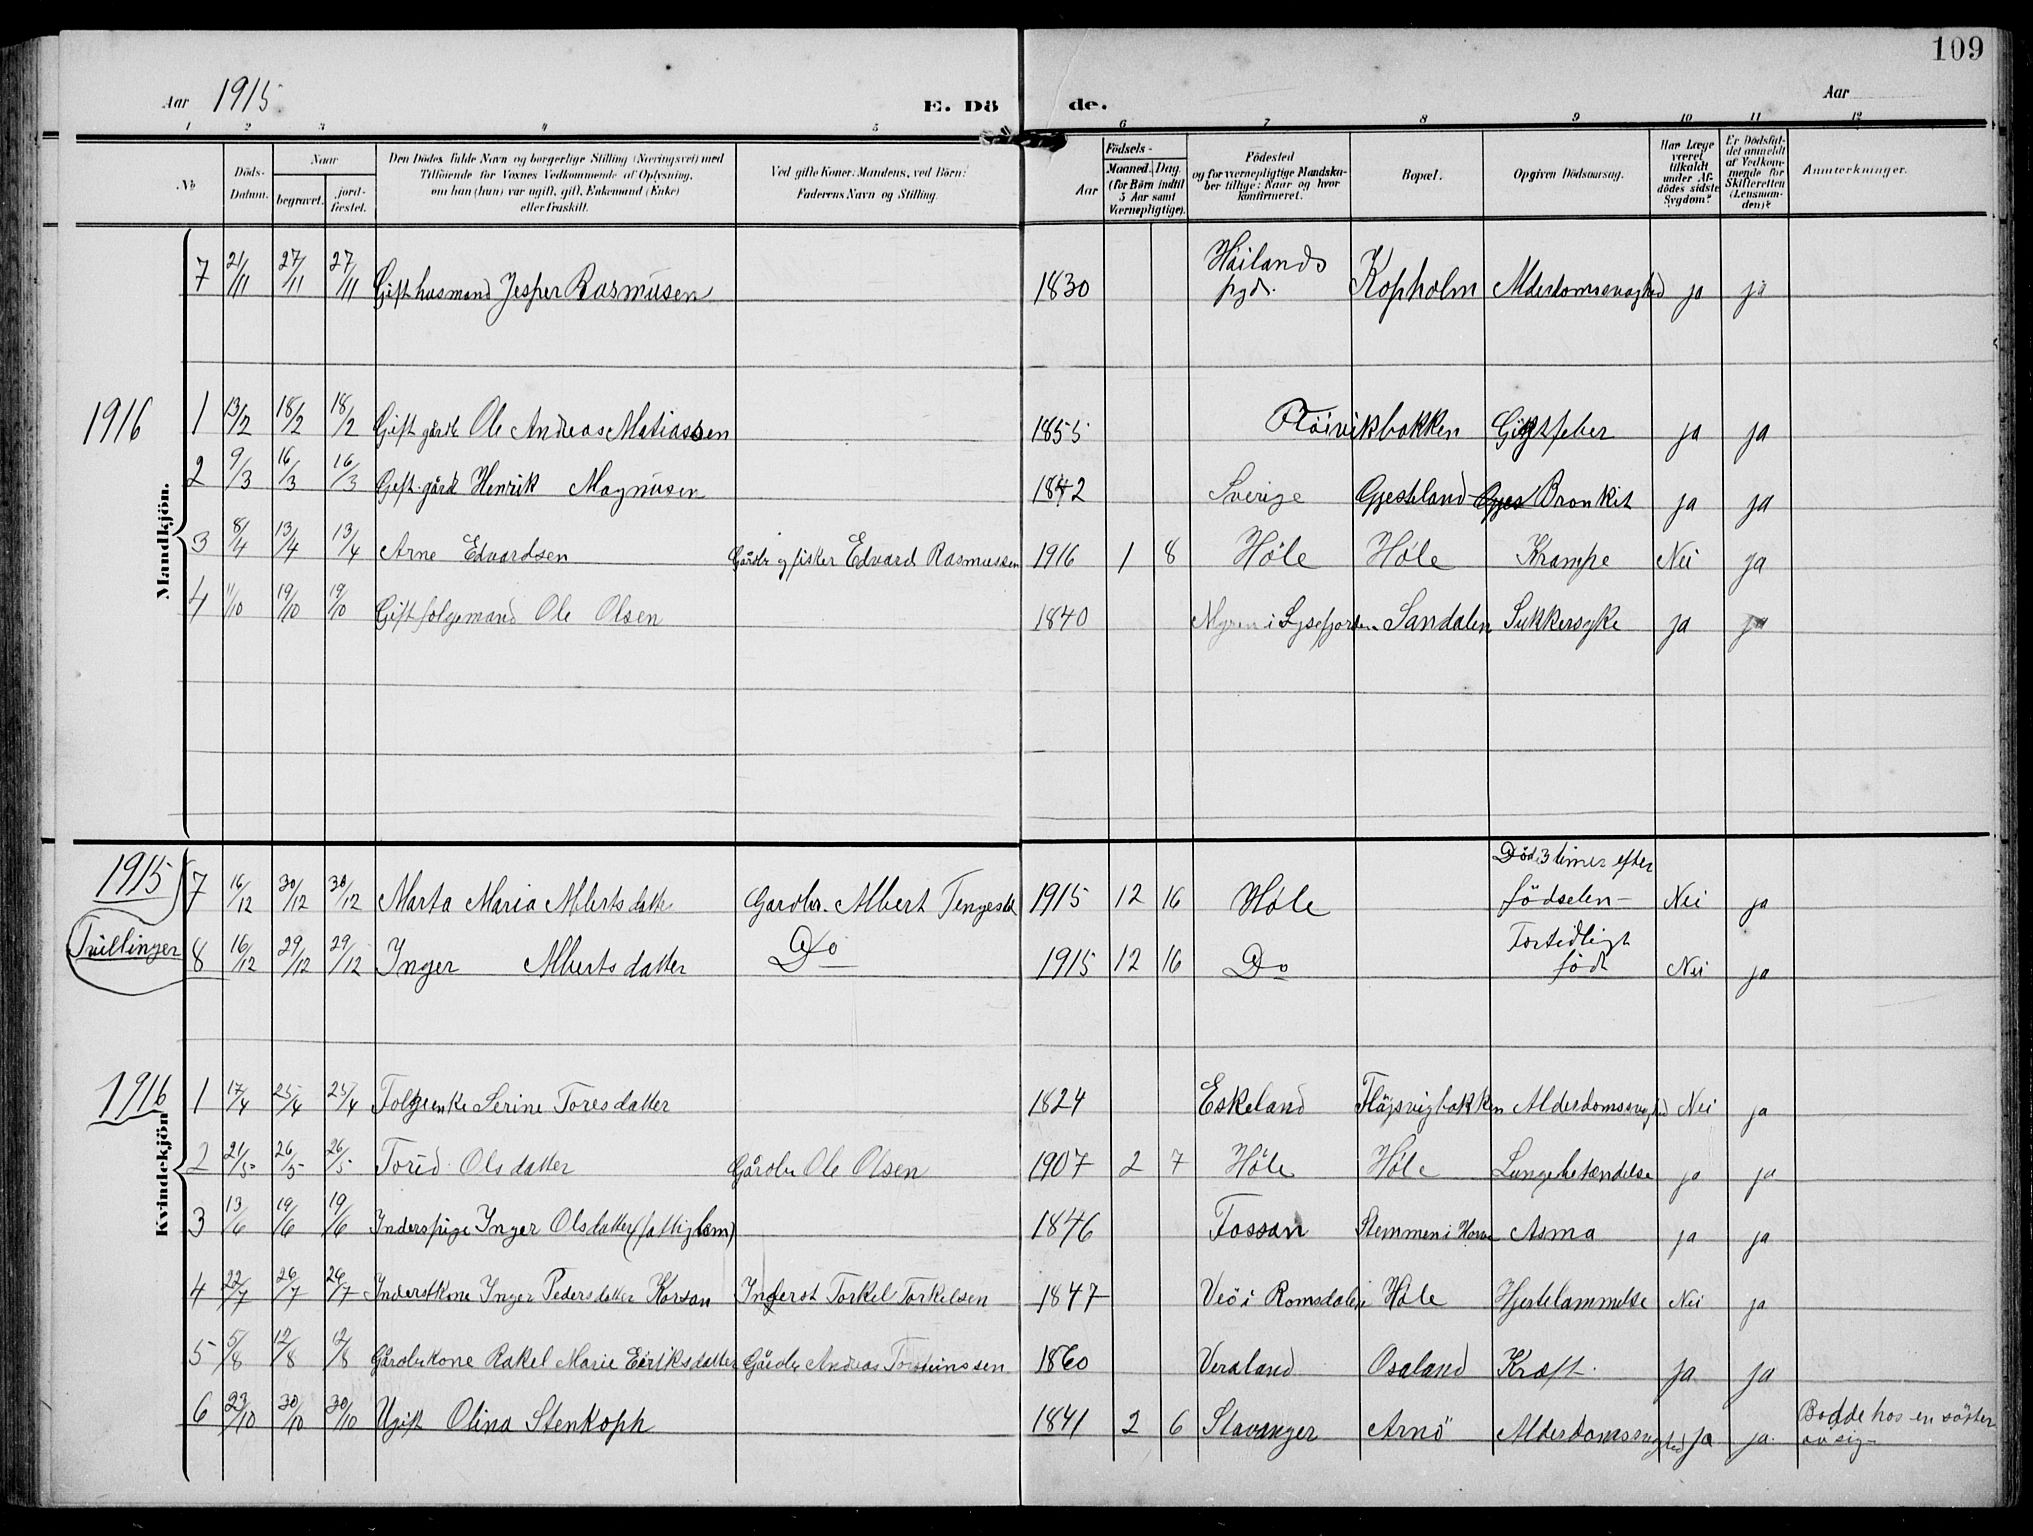 109
Aar 1915
E. Dö de.
Aar
1 2 3 4 5 6 7 8 9 10 11 12
No
Döds-Datum.
Naar
begravet.
jordfæstet.
Den Dödes fulde Navn og borgerlige Stilling (Næringsvei) med
Tilföiende for Voxnes Vedkommende af Oplysning,
om han (hun) var ugift, gift, Enkemand (Enke)
eller fraskilt.
Ved gifte Koner: Mandens, ved Börn:
Faderens Navn og Stilling.
Födsels-
Aar
Maaned. Dag.
(for Börn indtil
5 Aar samt
Værnepligtige).
Födested
og for værnepligtige Mandskaber tillige: Naar og hvor
konfirmeret.
Bopæl.
Opgiven Dödsaarsag.
Har Læge
været
tilkaldt
under Afdödes sidste
Sygdom?
Er Dödsfaldet anmeldt
af Vedkommende for
Skifteretten
(Lensmanden)?
Anmerkninger.
Mandkjön.
7 21/11 27/11 27/11 Gift husmand Jesper Rasmusen 1830 Häilands pgd. Kopholm Alderdomssvaghed ja ja
1916
1 13/2 18/2 18/2 Gift gårdb Ole Andreas Matiassen 1855 Flöivikbakken Gigtfeber ja ja
2 9/3 16/3 16/3 Gift. gårdb Henrik Magnusen 1842 Sverige Gjesteland Bronkit ja ja
3 8/4 13/4 13/4 Arne Edvardsen Gårdbr og fisker Edvard Rasmussen 1916 1 8 Höle Höle Krampe Nei ja
4 11/10 19/10 19/10 Gift folgemand Ole Olsen 1840 Myren i Lysefjorden Sandalen Sukkersyke ja ja
Kvindekjön
1915
Tvillinger
7 16/12 30/12 30/12 Marta Maria Albertsdatter Gardbr. Albert Tengesdal 1915 12 16 Höle Död 3 timer efter födselen - Nei ja
8 16/12 29/12 29/12 Inger Albertsdatter Do 1915 12 16 Do Fortidligt födt Nei ja
1916
1 17/4 25/4 25/4 Folgeenke Serine Toresdatter 1824 Eskeland Fløjsvigbakken Alderdomssvaghed Nei ja
2 21/5 26/5 26/5 Torid Olsdatter Gårdbr Ole Olsen 1907 2 7 Höle Höle Lungebetændelse ja ja
3 13/6 19/6 19/6 Inderspige Inger Olsdatter (fattiglem) 1846 Fossan Stemmen i Horve Asma ja ja
4 22/7 26/7 26/7 Inderstkone Inger Pedersdatter Korson Inderst Torkel Torkelsen 1847 Veö i Romsdalen Höle Hjertelammelse Nei ja
5 5/8 12/8 12/8 Gårdbrkone Rakel Marie Eiriksdatter Gårdbr Andreas Torsteinssen 1860 Veraland Osaland Kræft. ja ja
6 23/10 30/10 30/10 Ugift Olina Stenkoph 1841 2 6 Stavanger Arnö Alderdomssvaghed ja ja. Bodde hos en söster av sig -